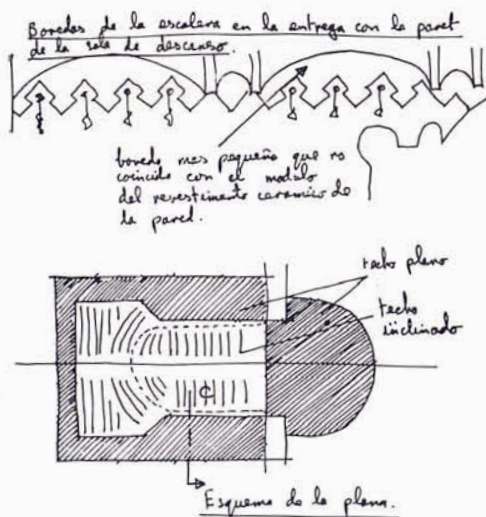 Bovedas de la escalera en la entrega con la paret
de la sala de descanso.
boveda mas pequeña que no
coincide con el modulo
del revestimento ceramico de
la paret.
techo plano
techo
inclinado
Esquema de la plana.